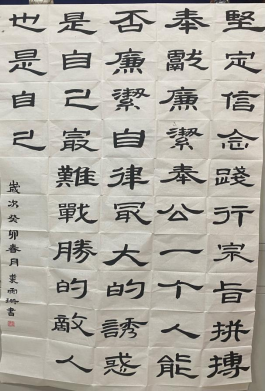 堅定信念踐行宗旨拼搏
奉獻廉潔奉公一个人能
否廉潔自律冣大的誘惑
是自己冣難戰勝的敵人
也是自己
歲次癸卯春月裴雨書